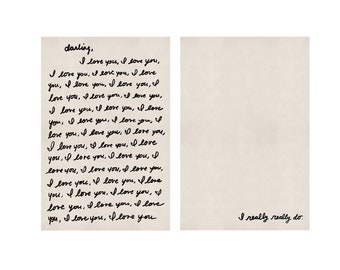 darling,
I love you, I love you,
I love you, I love you, I love
you, I love you, I love you, I
love you, I love you, I love you,
I love you, I love you, I love
you, I love you, I love you, I
love you, I love you, I love you,
I love you, I love you, I love
you, I love you, I love you, I
love you, I love you, I love you,
I love you, I love you, I love
you, I love you, I love you, I
love you, I love you, I love
you, I love you, I love you
I really really do.